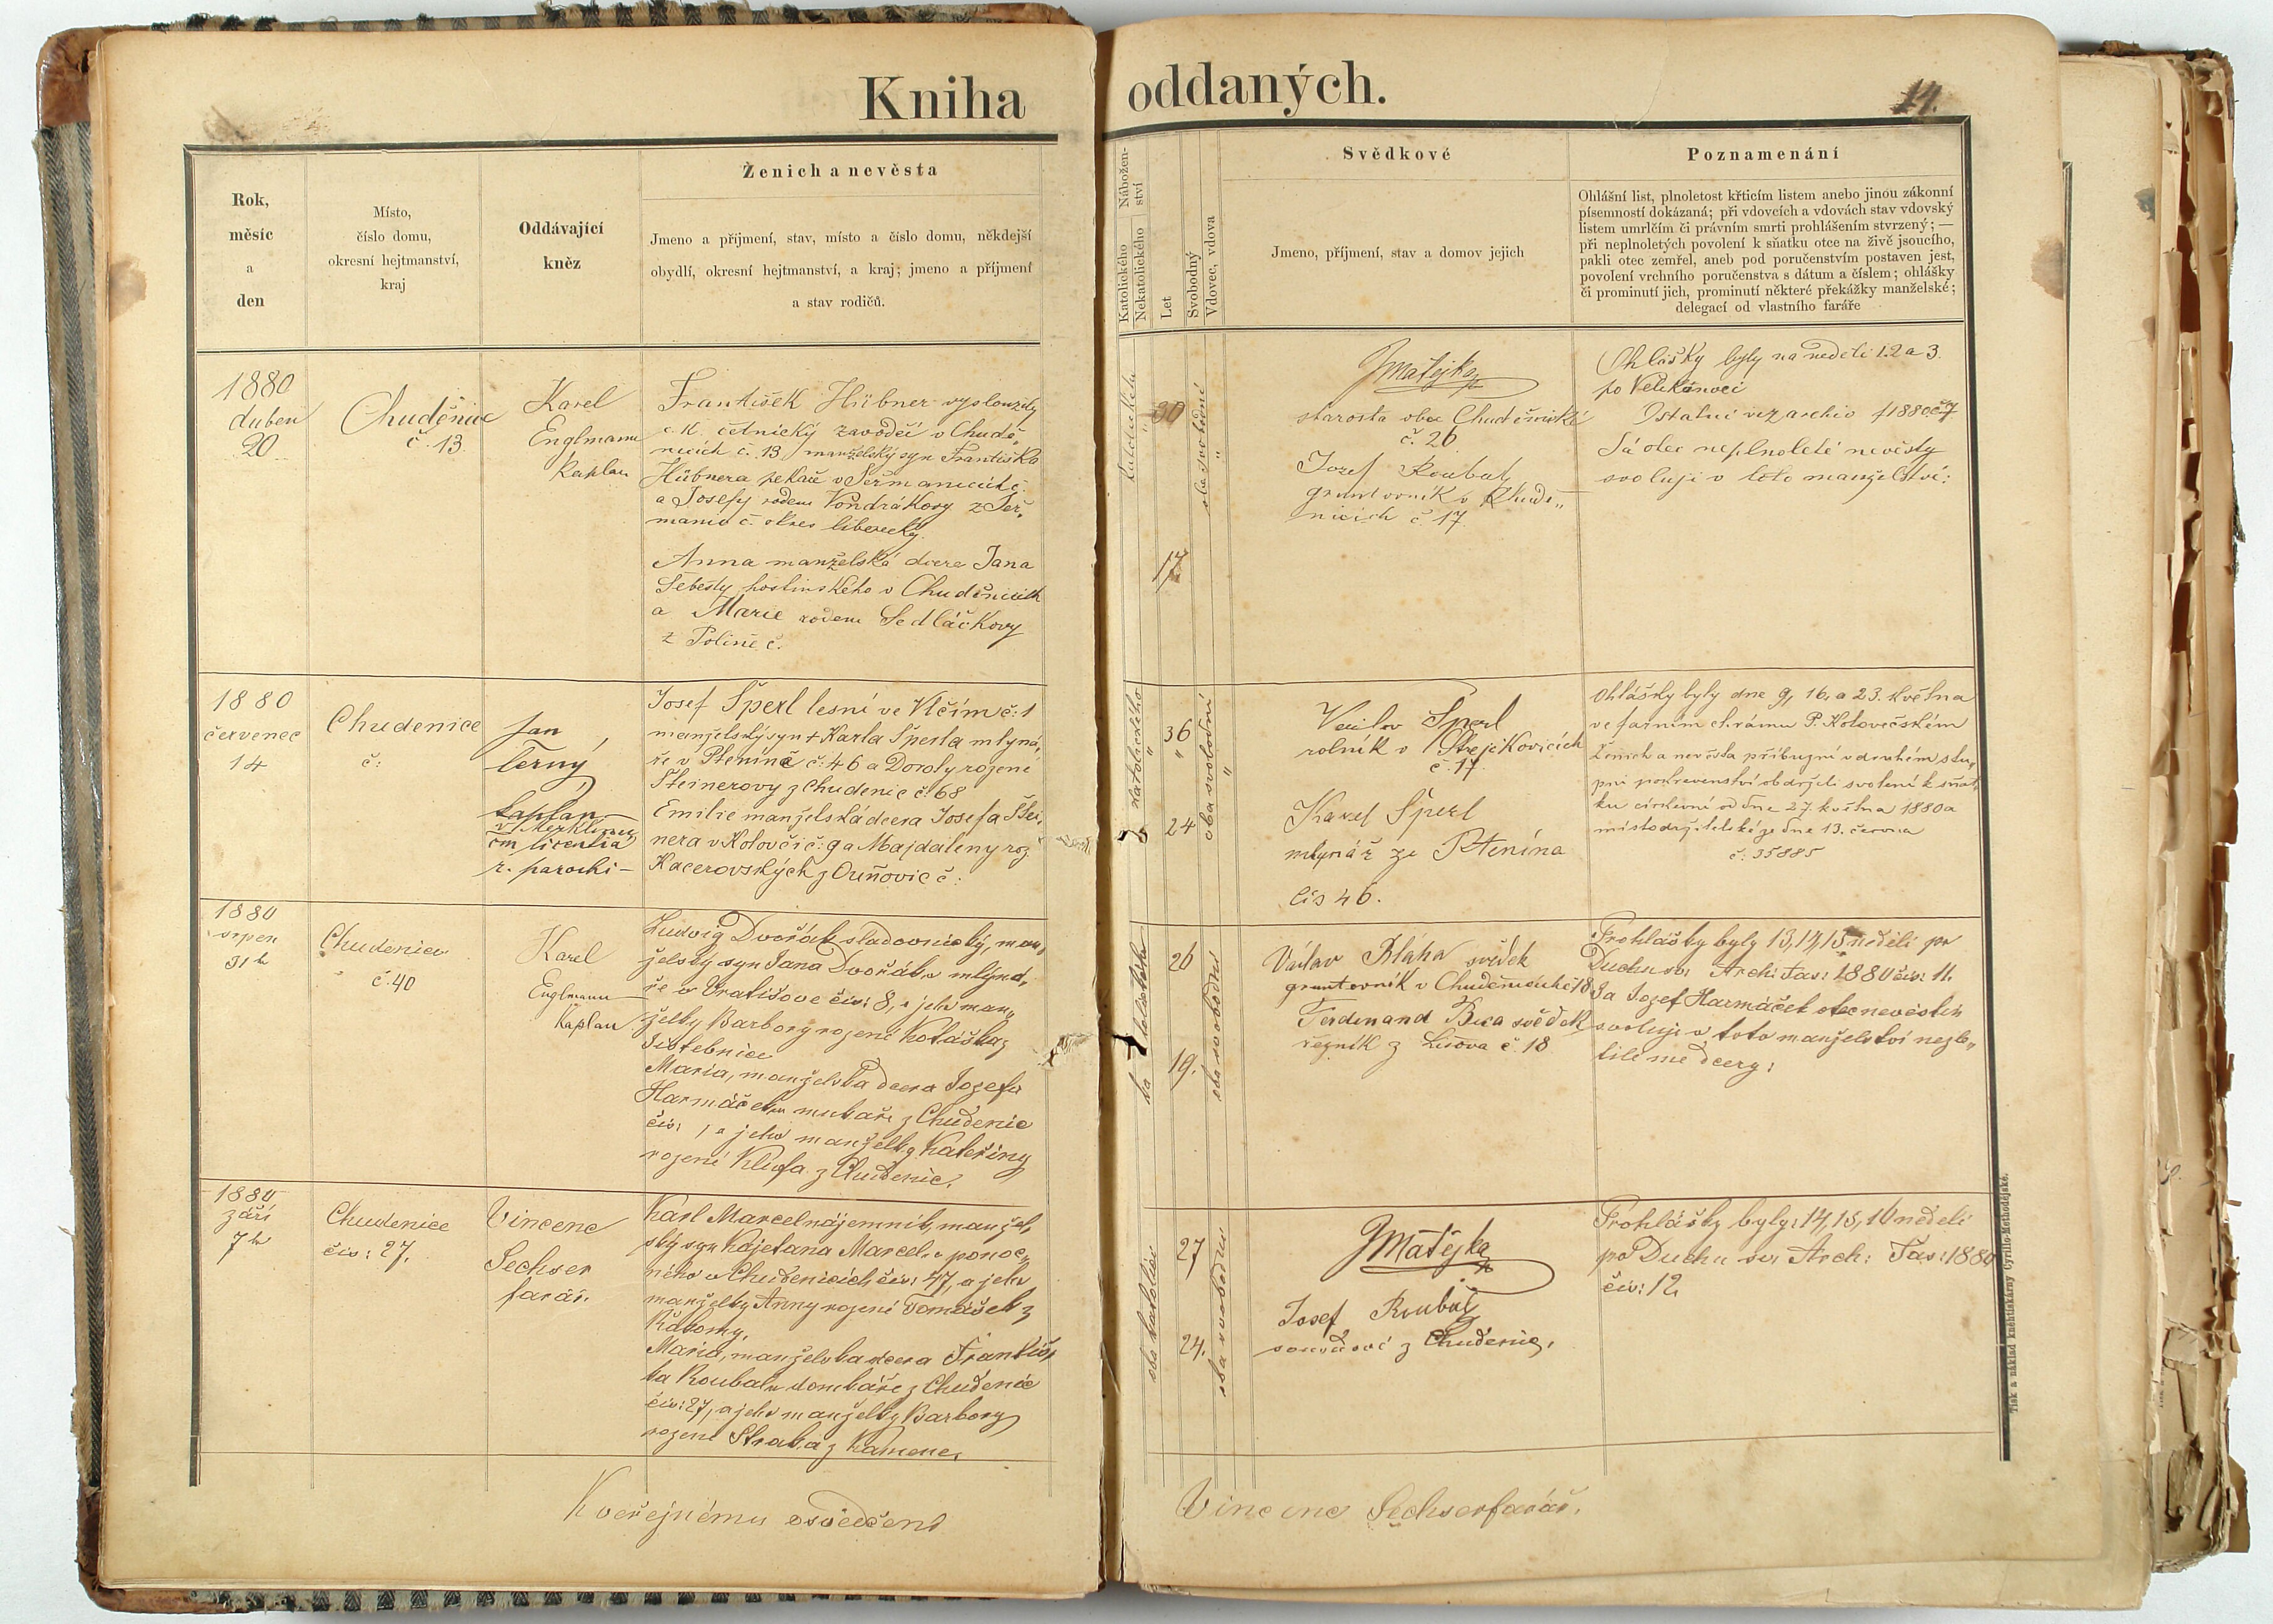 Kniha oddaných.
11.
Rok,
měsíc
a
den
Místo,
číslo domu,
okresní hejtmanství,
kraj
Oddávající
kněz
Ženich a nevěsta
Jmeno a přijmení, stav, místo a číslo domu, někdejší
obydlí, okresní hejtmanství, a kraj; jmeno a příjmení
a stav rodičů.
Nábožen-
ství
Katolického
Nekatolického
Let
Svobodný
Vdovec, vdova
Svědkové
Jmeno, příjmení, stav a domov jejich
Poznamenání
Ohlášní list, plnoletost křticím listem anebo jinou zákonní
písemností dokázaná; při vdovcích a vdovách stav vdovský
listem umrlčím či právním smrti prohlášením stvrzený; —
při neplnoletých povolení k sňatku otce na živě jsoucího,
pakli otec zemřel, aneb pod poručenstvím postaven jest,
povolení vrchního poručenstva s dátum a číslem; ohlášky
či prominutí jich, prominutí některé překážky manželské;
delegací od vlastního faráře
1880
duben
20
Chuděnice
č. 13
Karel
Englmann
kaplan
František Hübner vysloužilý
c. k. četnický závodčí v Chudě-
nicích č. 13 manželský syn Františka
Hübnera pekaře v Šeřmanicích č.
a Josefy rodem Vondrákovy z Šeř-
manic č. okres liberecký.
Anna manželská dcera Jana
Šebesty hostinského v Chuděnicích
a Marie rodem Sedláčkovy
z Polině č.
30
17
oba svobodní
JMatějka
starosta obce Chuděnické
č. 26
Josef Roubal
gruntovník v Chudě-
nicích č 17
Ohlášky byly na neděli 1. 2 a 3.
po Velikonoci
Ostatní viz archiv f 1880 č. 7
Já otec neplnoleté nevěsty
svoluji v toto manželství:
1880
červenec
14
Chudenice
č:
Jan
Černý
kaplan
v Merklíně
cum licentia
r. parochi
Josef Šperl lesní ve Vlčím č: 1
manželský syn + Karla Šperla mlyná-
ře v Ptenině č: 46 a Doroty rozené
Steinerovy z Chudenic č: 68
Emilie manželská dcera Josefa Stei-
nera v Kolovči č: 9 a Majdaleny roz.
Kacerovských z Ouňovic č:
katolického
36
24
oba svobodní
Šperl
rolník v Strejčkovicích
č. 17.
Karel Šperl
mlynář ze Ptenína
čís 46.
Ohlášky byly dne 9, 16, a 23. května
ve farním chrámu P. Kolovečském
Ženich a nevěsta příbuzní v druhém stu-
pni pokrevenství obdrželi svolení k sňat-
ku církevní od dne 27. května 1880 a
místodržitelské ze dne 13. června
č: 35885
1880
srpen
31h
Chudenice
č. 40
Karel
Englmann
kaplan
Ludvig Dvořák sladovnický, man-
želský syn Jana Dvořáka mlyná-
ře v Vratišove čís: 8, a jeho man-
želky Barbory rozené Kotáška z
Jistebnice
Maria, manželská dcera Josefa
Harmáčka z Chudenic
čís: 1 a jeho manželky Kateřiny
rozené Klufa z Chudenic.
26
19.
oba svobodní
Václav Bláha svědek
gruntovník v Chuděnicích č 18
Ferdinand svědek
řezník z Lisova č. 18
Prohlášky byly 13, 14, 15 neděli po
Duchu sv. Arch: Fas: 1880 čís: 11.
Ja Josef Harmáček otec nevěstin
svoluji v toto manželství nezle-
tilé mé dcery:
1880
září
7h
Chudenice
čís: 27.
Vincenc
Sechser
farář.
Karl Marcel nájemník, manžel-
ský syn Kajetana Marcela ponoc-
ného v Chudenicích čís: 47, a jeho
manželky Anny rozené Tomášek z
Maria, manželská dcera Františ-
ka Roubala domkáře z Chudenic
čís: 27, a jeho manželky Barbory
rozené Straka z Kamene.
oba katolíci
27
24.
oba svobodní
JMatějka
Josef Roubal
sousedové z Chudenic.
Prohlášky byly: 14, 15, 16 neděli
po Duchu sv. Arch: Fas: 1880
čís: 12.
K veřejnému osvědčení
Vincenc Sechser farář.
Tisk a náklad knihtiskárny Cyrillo-Methodějské.